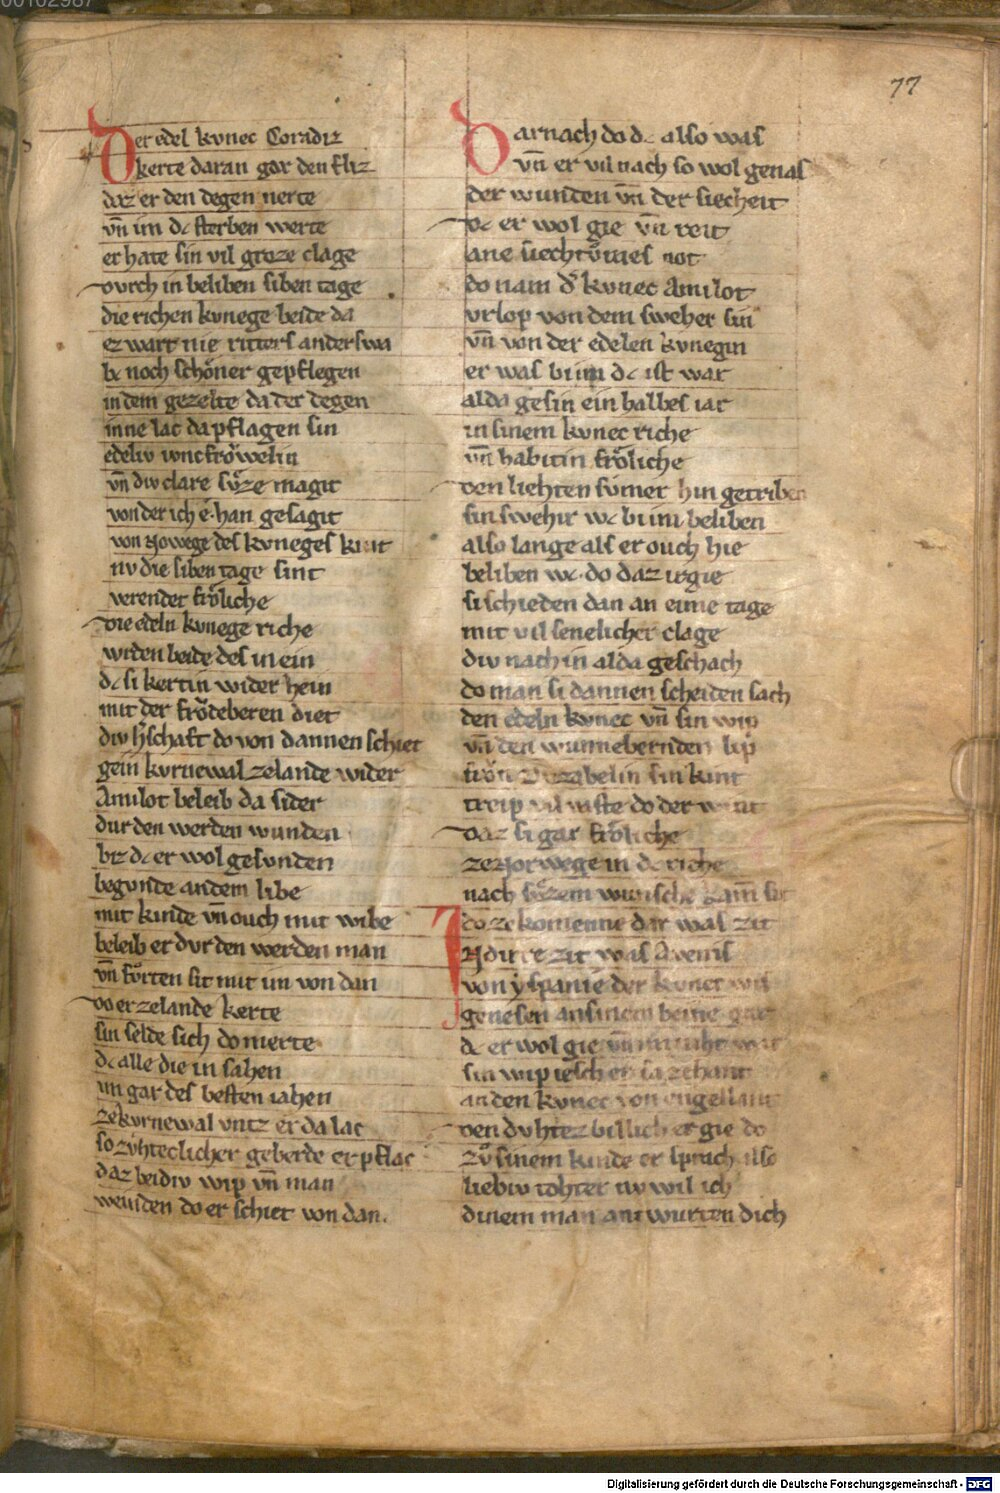 77
Der edel kvnec Coradiz
kerte daran gar den fliz
daz er den degen nerte
vn̄ im dc sterben werte
er hate sin vil groze clage
Dvrch in beliben siben tage
die richen kvnege beide da
ez wart nie ritters anderswa
bc noch schoͤner gepflegen
in dem gezelte da der degen
inne lac da pflagen sin
edeliv ivncfroͮwelin
vn̄ div clare suͤze magit
von der ich é han gesagit
von Norwege des kvneges kint
nv die siben tage sint
verendet froͤliche
Die edeln kvnege riche
wrden beide des in ein
dc si kertin wider hein
mit der froͤdeberen diet
div hˢschaft do von dannen schiet
gein kvrnewal zelande wider
Amilot beleib da sider
dur den werden wunden
biz dc er wol gesunden
begvnde an dem libe
mit kinde vn̄ ouch mit wibe
beleib er dvr den werden man
vn̄ fuͦrten sit mit im von dan
Do er zelande kerte
sin selde sich do merte
dc alle die in sahen
im gar des besten iahen
ze kvrnewal vntz er da lac
so zvhteclicher geberde er pflac
daz beidiv wip vn̄ man
weinden do er schiet von dan.
Darnach do dc also was
vn̄ er vil nach so wol genas
der wunden vn̄ der siecheit
Dc er wol gie vn̄ reit
ane siechtuͦmes not
do nam dˢ kvnec Amilot
vrlop von dem sweher sin
vn̄ von der edelen kvnegin
er was bi im dc ist war
alda gesin ein halbes iar
in sinem kvnecriche
vn̄ habitin froͤliche
Den liehten svmer hin getriben
sin swehir wc bi im beliben
also lange als er ouch hie
beliben wc. do daz irgie
si schieden dan an eime tage
mit vil senelicher clage
div nach in alda geschach
do man si dannen scheiden sach
den edeln kvnec vn̄ sin wip
vn̄ den wunnebernden lip
froͮn sin kint
treip vil do der wint
Daz si gar froͤliche
ze Norwege in dc riche
nach suͤzem wunsche
do ze komenne dar was zit
IN dirre zit was Avenis
von yspanie der kvnec wis
genesen an sinem beine gar
dc er wol gie vn̄
sin wip iesch er sa zehant
an den kvnec von engellant
Den dvhte billich er gie do
zuͦ sinem kinde er sprach also
liebiv tohter nv wil ich
dinem man antwurten dich
Digitalisierung gefördert durch die Deutsche Forschungsgemeinschaft - DFG